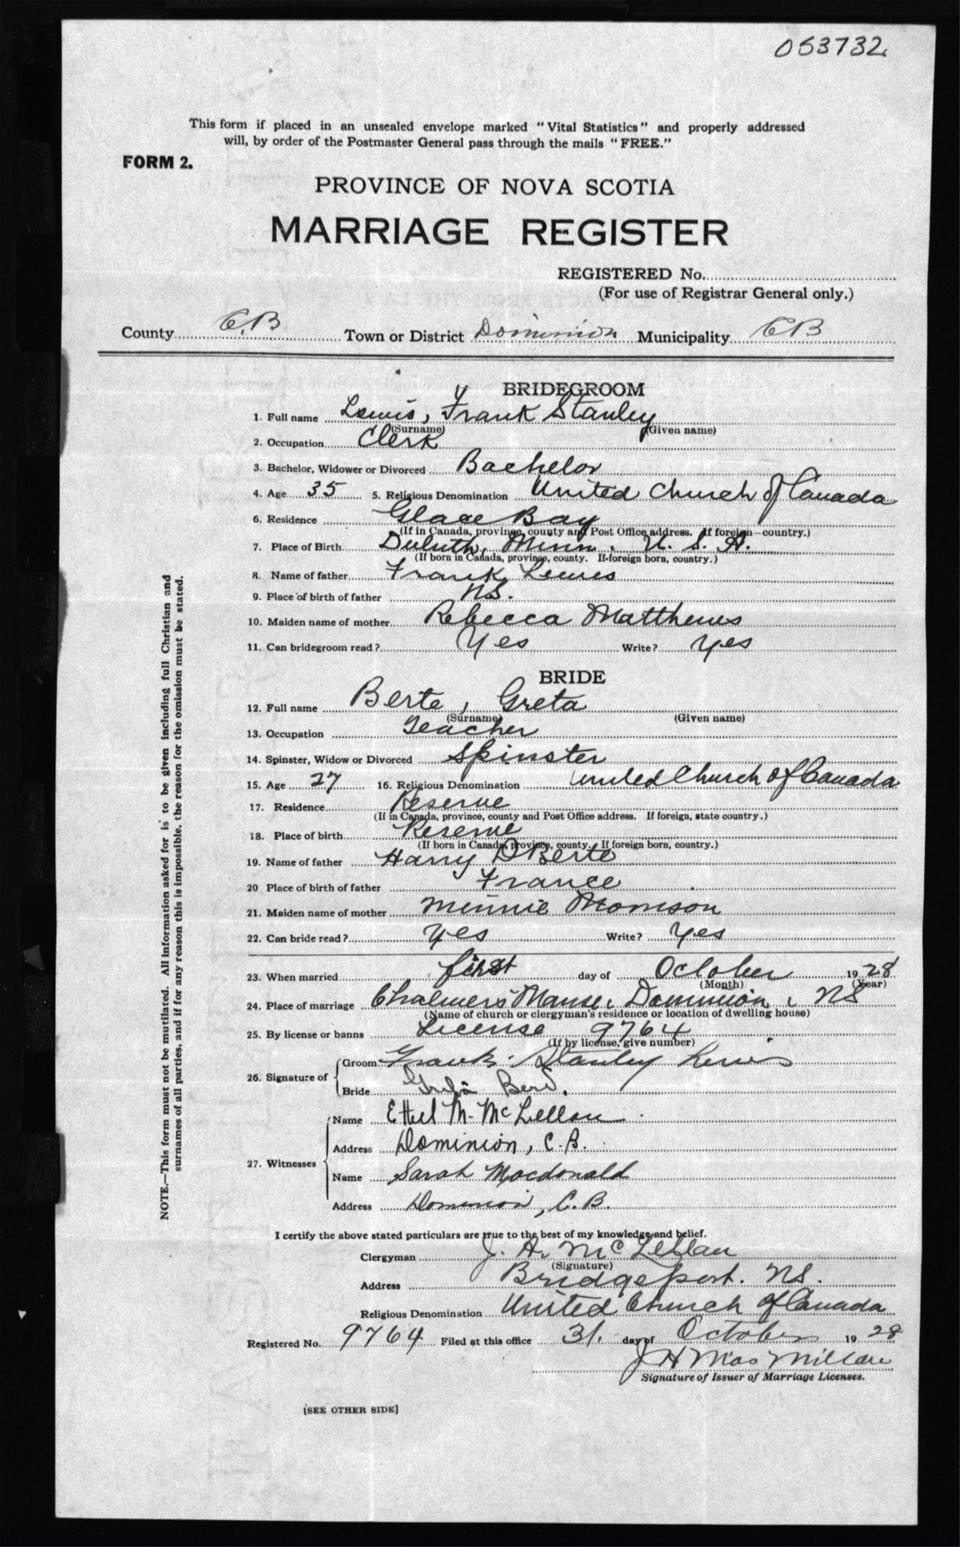 053732
This form if placed in an unsealed envelope marked "Vital Statistics" and properly addressed
will, by order of the Postmaster General pass through the mails "FREE."
FORM 2.
PROVINCE OF NOVA SCOTIA
MARRIAGE REGISTER
REGISTERED No.
(For use of Registrar General only.)
County C.B Town or District Dominion Municipality CB
BRIDEGROOM
1. Full name Lewis, Frank Stanley
(Surname) (Given name)
2. Occupation Clerk
3. Bachelor, Widower or Divorced Bachelor
4. Age 35 5. Religious Denomination United Church of Canada
6. Residence Glace Bay
(If in Canada, province, county and Post Office address. If foreign country.)
7. Place of Birth Duluth, Minn. U. S. A.
(If born in Canada, province, county. If foreign born, country.)
8. Name of father Frank Lewis
9. Place of birth of father NS.
10. Maiden name of mother Rebecca Matthews
11. Can bridegroom read? Yes Write? Yes
BRIDE
12. Full name Berte, Greta
(Surname) (Given name)
13. Occupation Teacher
14. Spinster, Widow or Divorced Spinster
15. Age 27 16. Religious Denomination United Church of Canada
17. Residence Reserve
(If in Canada, province, county and Post Office address. If foreign, state country.)
18. Place of birth Reserve
(If born in Canada, province, county. If foreign born, country.)
19. Name of father Harry D Berte
20 Place of birth of father France
21. Maiden name of mother Minnie Morrison
22. Can bride read? Yes Write? Yes
23. When married first day of October 1928
(Month) (Year)
24. Place of marriage Chalmers Manse, Dominion, NS
(Name of church or clergyman's residence or location of dwelling house)
25. By license or banns License 9764
(If by license, give number)
26. Signature of
Groom Frank Stanley Lewis
Bride
27. Witnesses
Name Ethel M. McLellan
Address Dominion, C.B.
Name Sarah Macdonald
Address Dominion, C.B.
I certify the above stated particulars are true to the best of my knowledge and belief.
Clergyman J. A. McLellan
(Signature)
Address Bridgeport. NS.
Religious Denomination United Church of Canada
Registered No. 9764 Filed at this office 31. day of October 1928
J H MacMillan
Signature of Issuer of Marriage Licenses.
[SEE OTHER SIDE]
NOTE.—This form must not be mutilated. All information asked for is to be given including full Christian and
surnames of all parties, and if for any reason this is impossible, the reason for the omission must be stated.